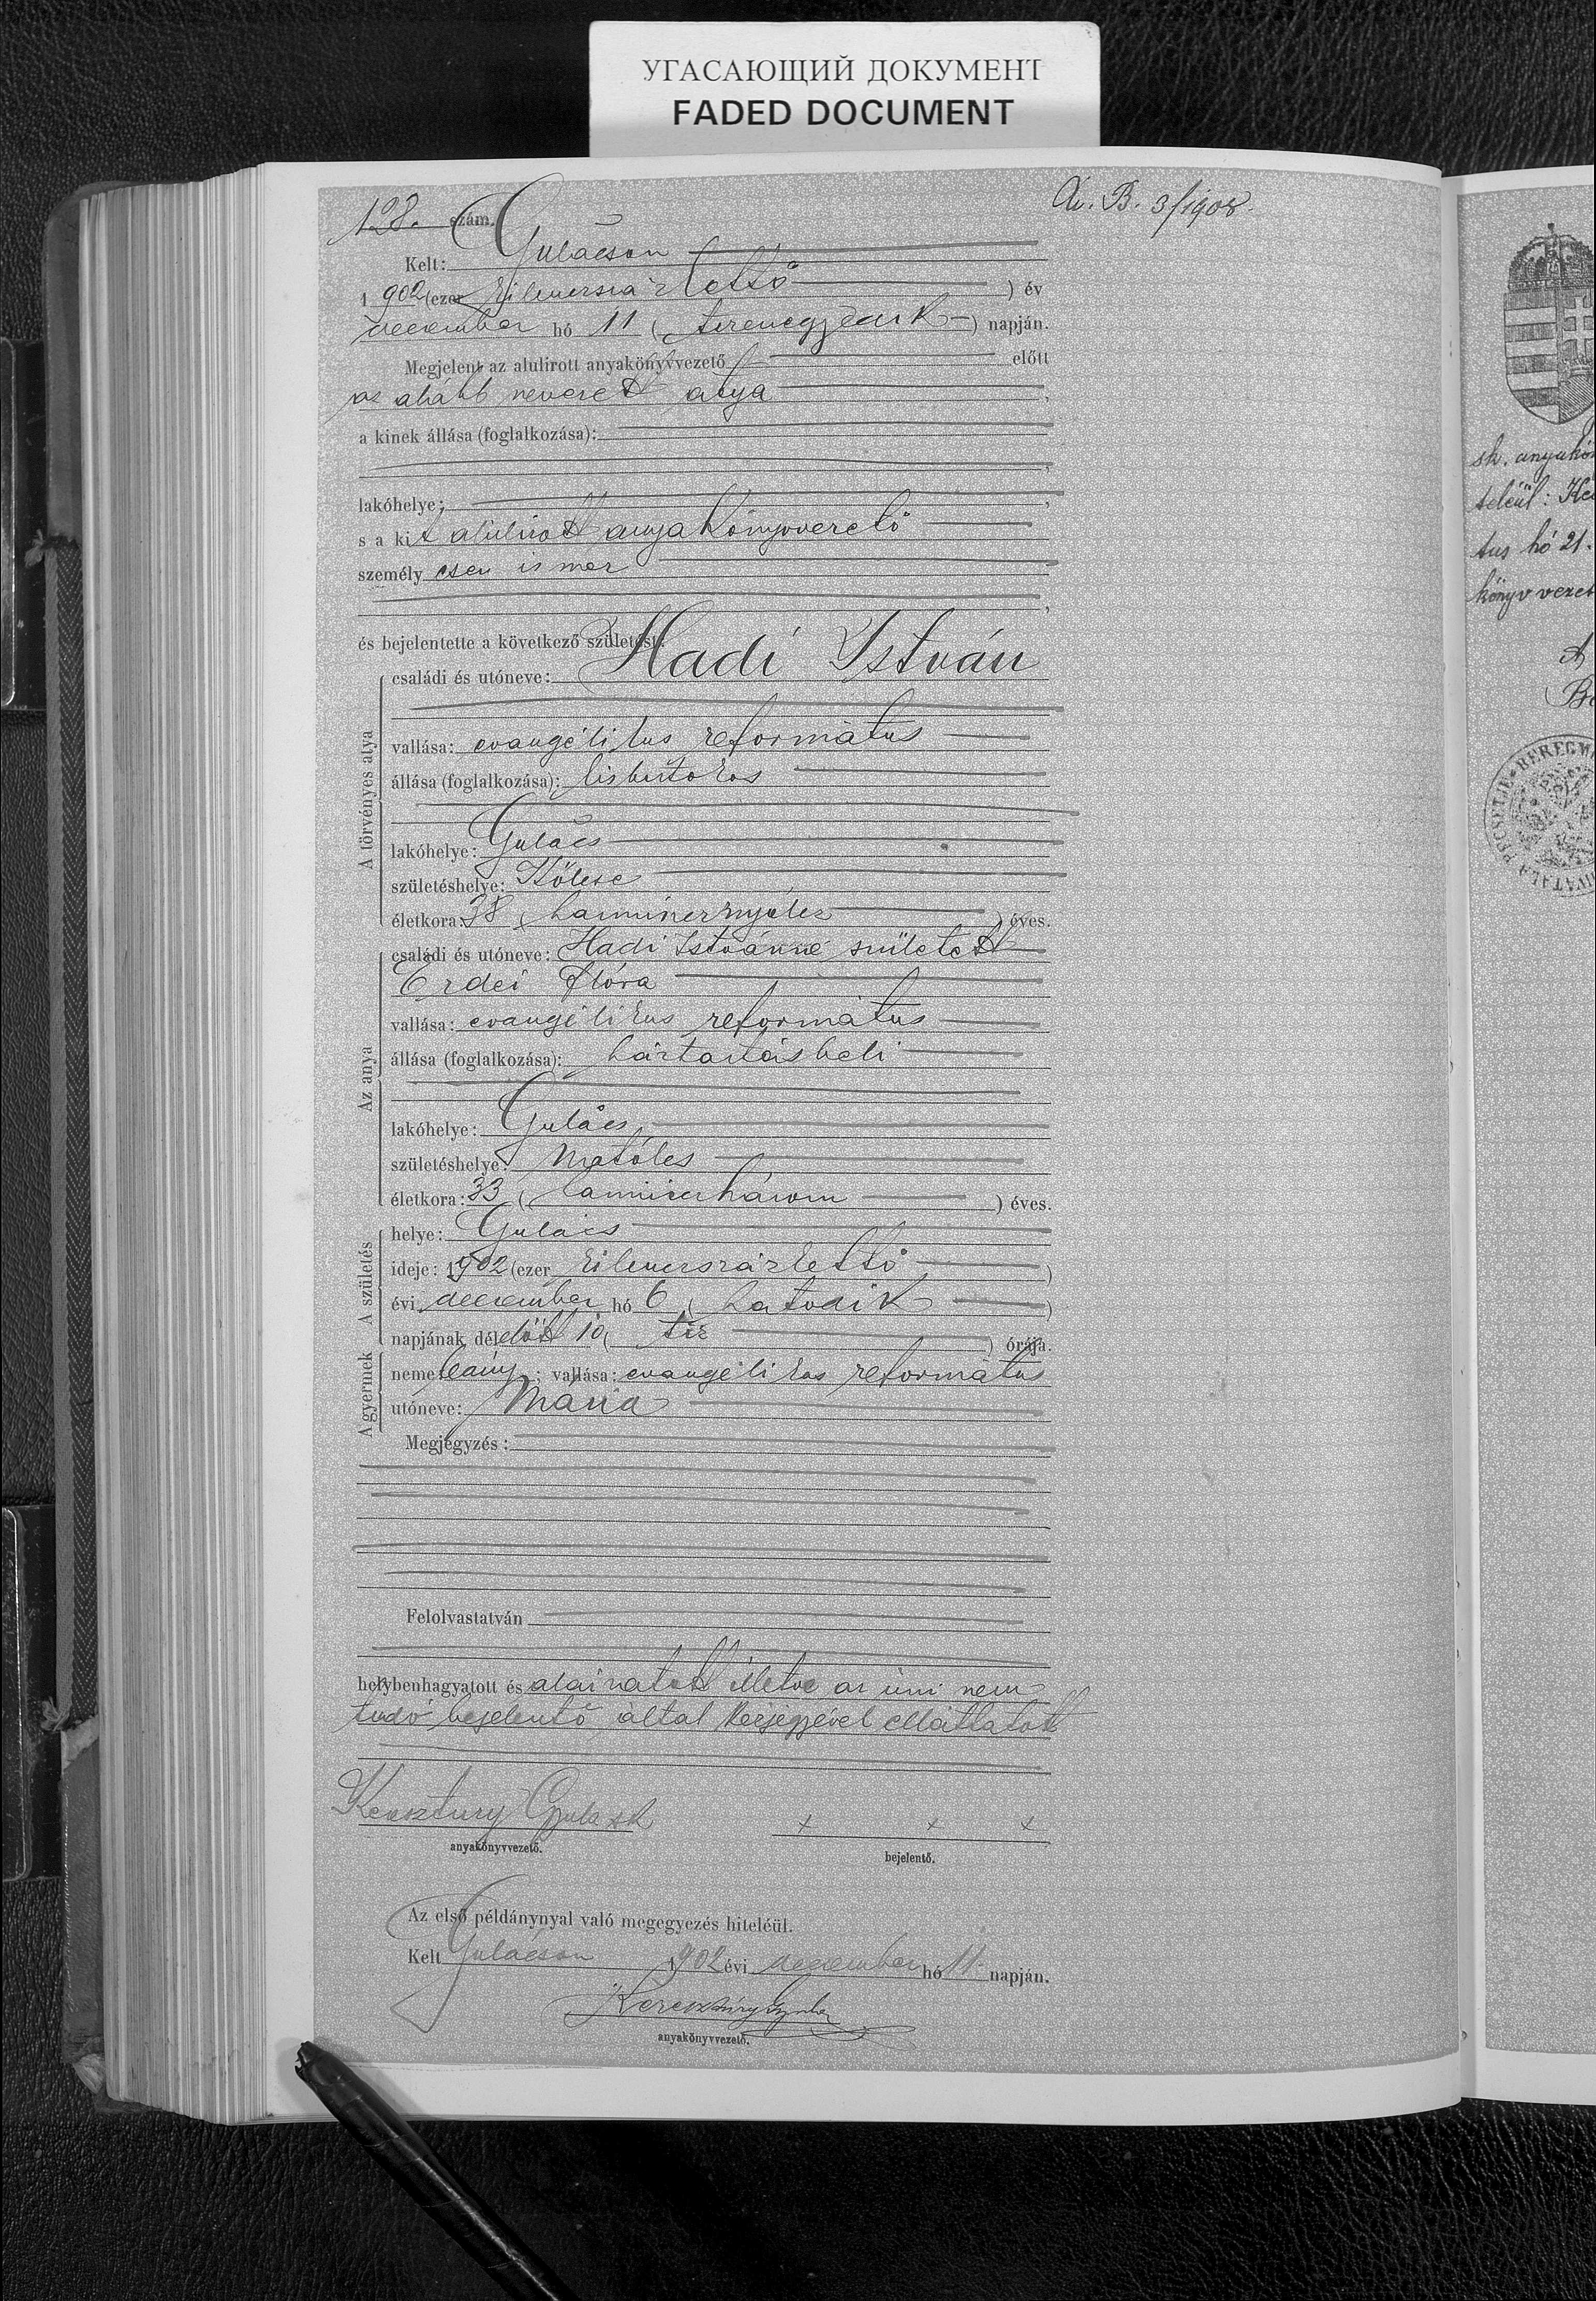 УГАСАЮЩИЙ ДОКУМЕНТ
FADED DOCUMENT
128. szám.
Áv. B. 3/1908.
Kelt: Gulácson
1902 (ezer kilencszázkettő) év
december hó 11 (tizenegyedik) napján.
Megjelent az alulirott anyakönyvvezető előtt
az alább nevezett atya,
a kinek állása (foglalkozása):
lakóhelye:
s a kit alulirott anyakönyvvezető
személyesen ismer
és bejelentette a következő születést:
A törvényes atya
családi és utóneve: Hadi István
vallása: evangélikus református
állása (foglalkozása): kisbirtokos
lakóhelye: Gulács
születéshelye: Kölcse
életkora: 38 (harmincznyolcz) éves.
Az anya
családi és utóneve: Hadi Istvánné született
Erdei Flóra
vallása: evangélikus református
állása (foglalkozása): háztartásbeli
lakóhelye: Gulács
születéshelye: Matolcs
életkora: 33 (harminczhárom) éves.
A születés
helye: Gulács
ideje: 1902 (ezer kilencszázkettő)
évi december hó 6 (hatodik)
napjának délelőtt 10 (tíz) órája.
A gyermek
neme: leány; vallása: evangélikus református
utóneve: Mária
Megjegyzés:
Felolvastatván
helybenhagyatott és aláiratott illetve az irni nem
tudó bejelentő által kézjegyével elláttatott
Keresztury Gyula sk
+ + +
anyakönyvvezető.
bejelentő.
Az első példánynyal való megegyezés hiteléül.
Kelt Gulácson 1902 évi december hó 11 napján.
Keresztury Gyula
anyakönyvvezető.
sk. anyakön
teléül: Ke
tus hó 21.
könyvvezet